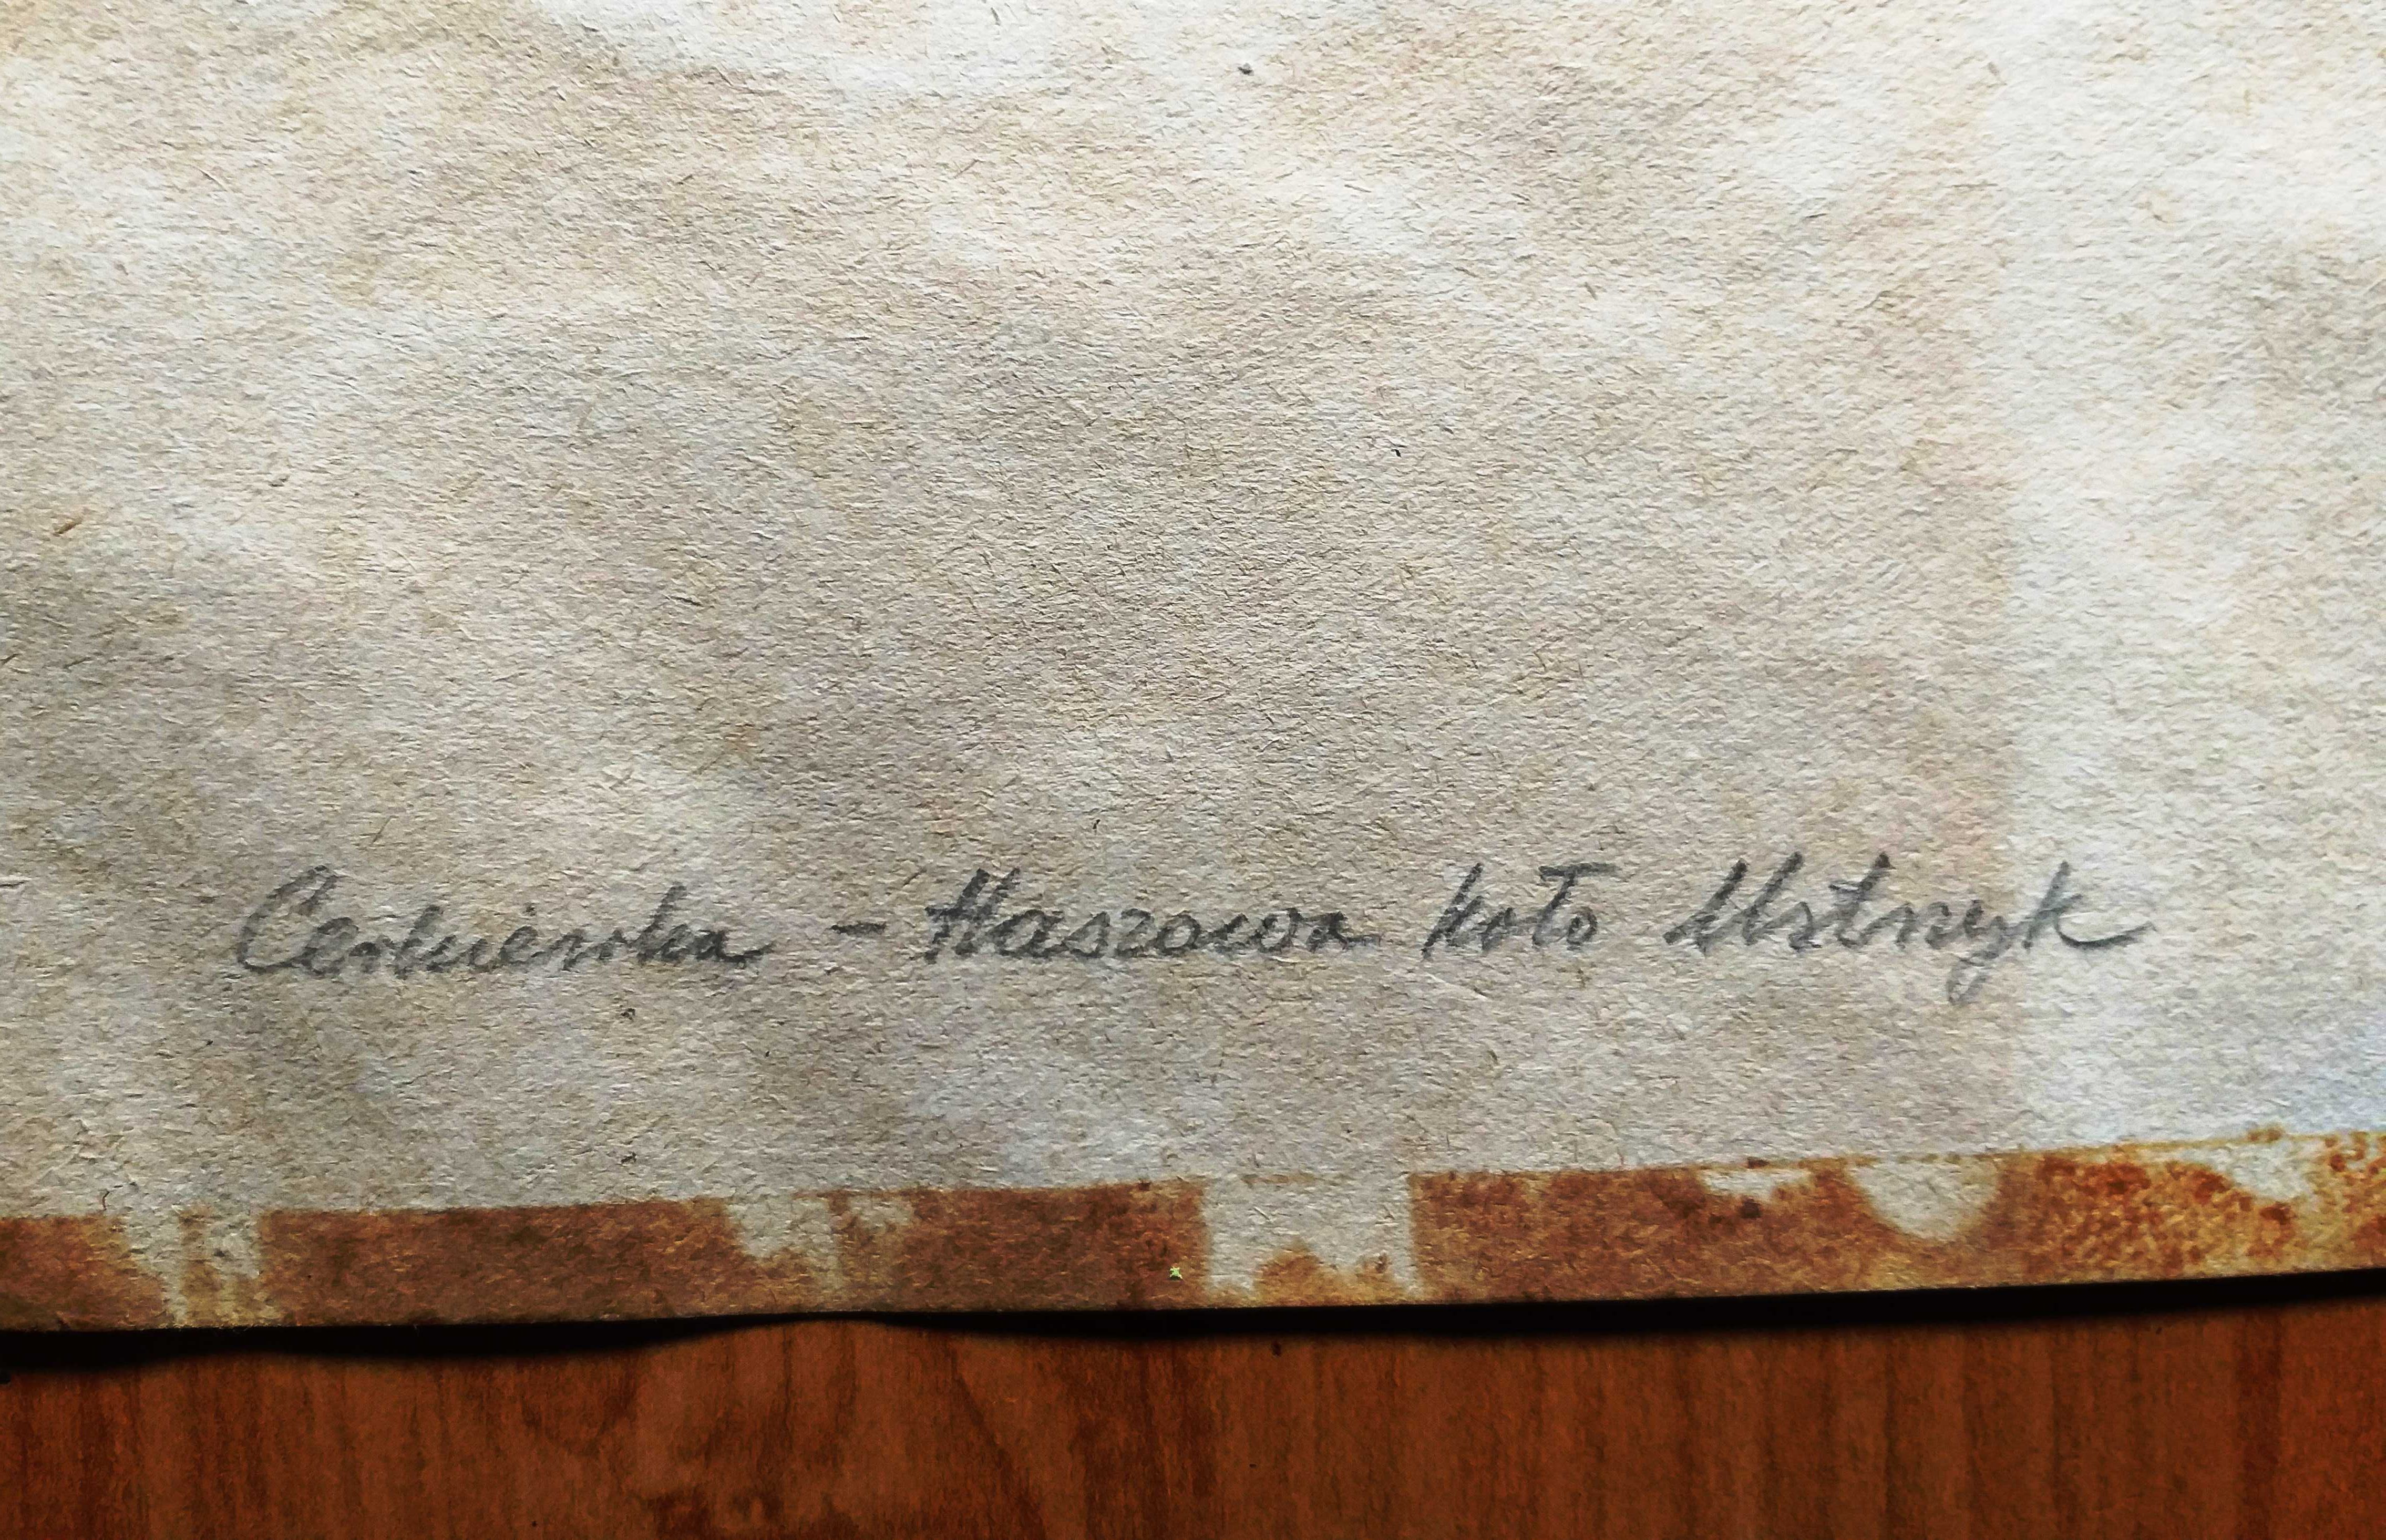 Cerkiewka - Haszowa koło Ustrzyk